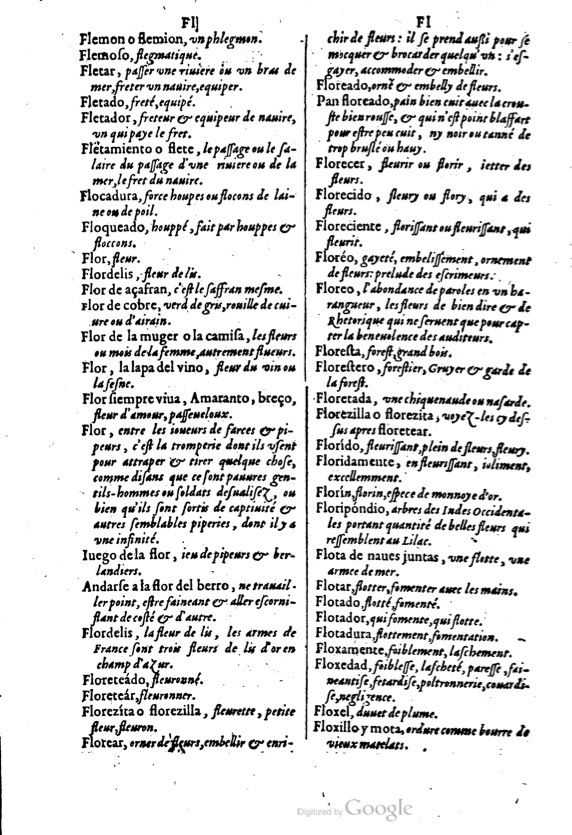 Fl
Flemon o flemion, vn phlegmon.
Flemoso, flegmatique.
Fletar, passer vne riuiere ou vn bras de
mer, freter vn nauire, equiper.
Fletado, freté, equipé.
Fletador, freteur & equipeur de nauire,
vn qui paye le fret.
Fletamiento o flete, le passage ou le sa-
laire du passage d'vne riuiere ou de la
mer, le fret du nauire.
Flocadura, force houpes ou flocons de lai-
ne ou de poil.
Floqueado, houppé, fait par houppes &
floccons.
Flor, fleur.
Flordelis, fleur de lis.
Flor de açafran, c'est le saffran mesme.
Flor de cobre, verd de gris, rouille de cui-
ure ou d'airain.
Flor de la muger o la camisa, les fleurs
ou mois de la femme, autrement flueurs.
Flor, la lapa del vino, fleur du vin ou
la sesne.
Flor siempre viua, Amaranto, breço,
fleur d'amour, passeueloux.
Flor, entre les ioueurs de farces & pi-
peurs, c'est la tromperie dont ils vsent
pour attraper & tirer quelque chose,
comme disans que ce sont pauures gen-
tils-hommes ou soldats desualisez, ou
bien qu'ils sont sortis de captiuité &
autres semblables piperies, dont il y a
vne infinité.
Iuego de la flor, ieu de pipeurs & ber-
landiers.
Andarse a la flor del berro, ne trauail-
ler point, estre faineant & aller escorni-
flant de costé & d'autre.
Flordelis, la fleur de lis, les armes de
France sont trois fleurs de lis d'or en
champ d'azur.
Floreteádo, fleuronné.
Floreteár, fleuronner.
Florezíta o florezilla, fleurette, petite
fleur, fleuron.
Florear, orner de fleurs, embellir & enri-
Fl
chir de fleurs : il se prend aussi pour se
mocquer & brocarder quelqu'vn : s'es-
gayer, accommoder & embellir.
Floreado, orné & embelly de fleurs.
Pan floreado, pain bien cuit auec la crou-
ste bien rousse, & qui n'est point blaffart
pour estre peu cuit, ny noir ou tanné de
trop bruslé ou hauy.
Florecer, fleurir ou florir, ietter des
fleurs.
Florecido, fleury ou flory, qui a des
fleurs.
Floreciente, florissant ou fleurissant, qui
fleurit.
Floréo, gayeté, embelissement, ornement
de fleurs: prelude des escrimeurs.
Floreo, l'abondance de paroles en vn ha-
rangueur, les fleurs de bien dire & de
Rhetorique qui ne seruent que pour cap-
ter la beneuolence des auditeurs.
Floresta, forest, grand bois.
Florestero, forestier, Gruyer & garde de
la forest.
Floretada, vne chiquenaude ou nasarde.
Florezilla o florezita, voyez-les cy des-
sus apres floretear.
Florído, fleurissant, plein de fleurs, fleury.
Floridamente, en fleurissant, ioliment,
excellemment.
Florin, florin, espece de monnoye d'or.
Floripóndio, arbres des Indes Occidenta-
les portant quantité de belles fleurs qui
ressemblent au Lilac.
Flota de naues juntas, vne flotte, vne
armee de mer.
Flotar, flotter, fomenter auec les mains.
Flotado, flotté, fomenté.
Flotador, qui fomente, qui flotte.
Flotadura, flottement, fomentation.
Floxamente, foiblement, laschement.
Floxedad, foiblesse, lascheté, paresse, fai-
neantise, fetardise, poltronnerie, couardi-
se, negligence.
Floxel, duuet de plume.
Floxillo y mota, ordure comme bourre de
vieux matelats.
Digitized by Google